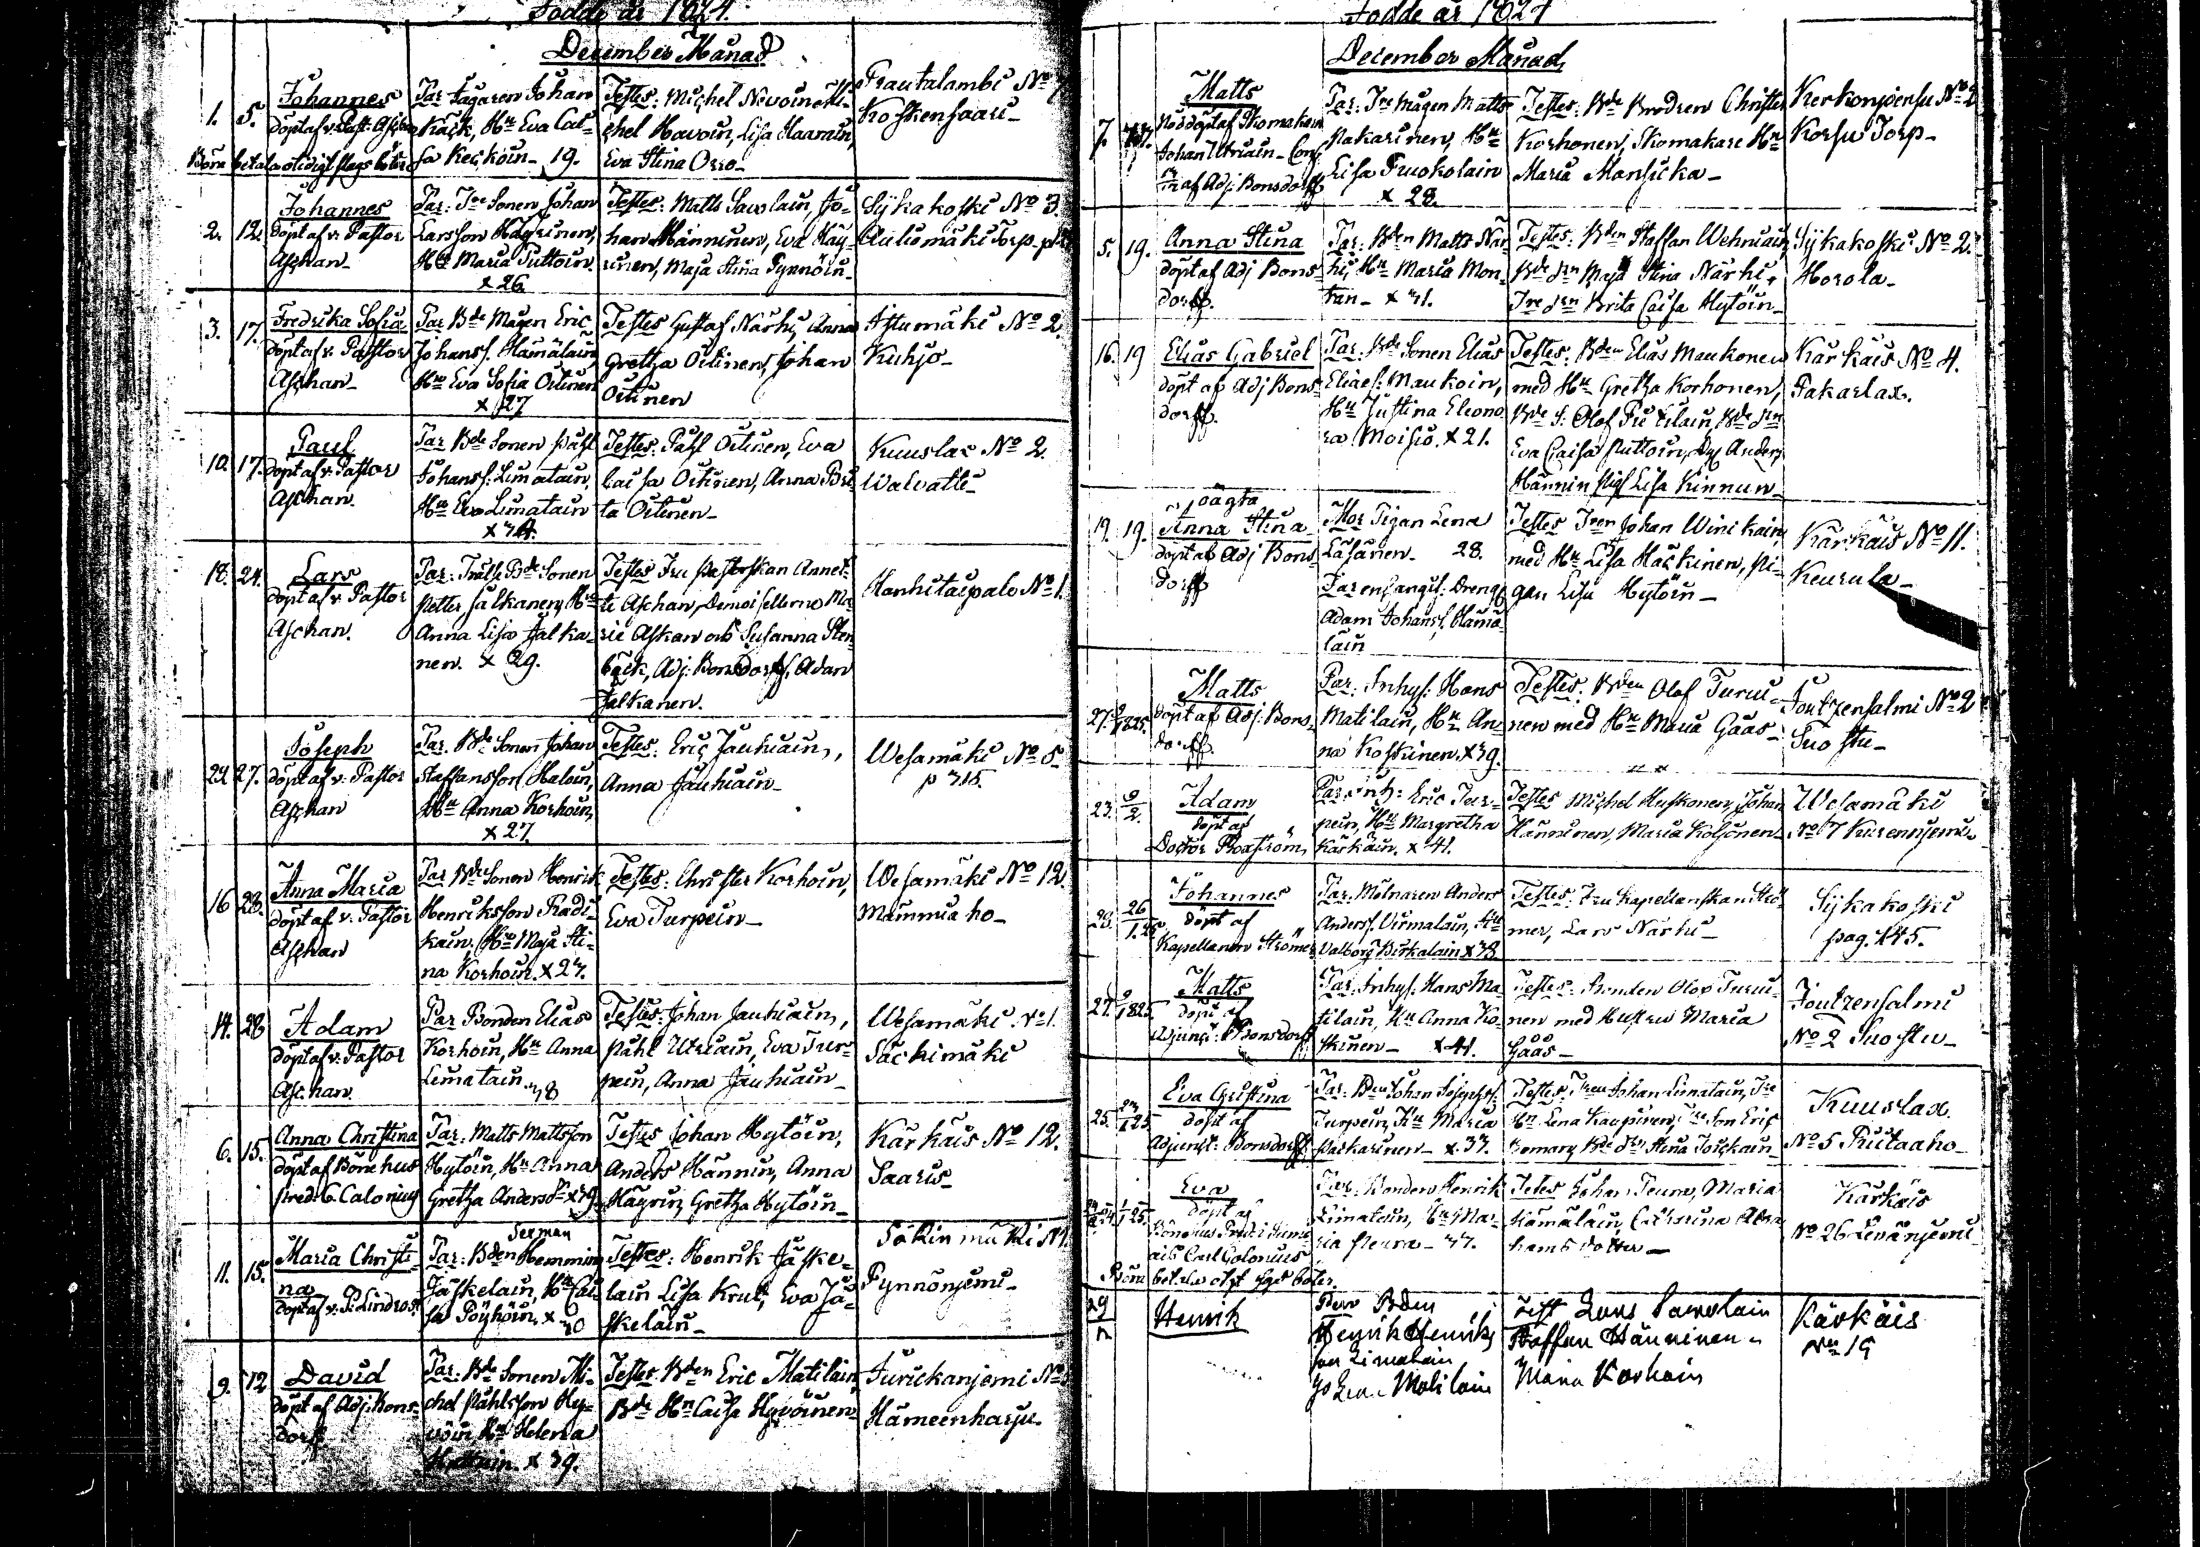 Födde år 1824.
December Månad
1. 5. Johannes
döpt af v. Past. Aschan
Par Jägaren Johan
Käck, Hu Eva Cai-
sa Keckoin 19.
Testes: Michel Novoin Mi-
chel Havoin, Lisa Haarain,
Eva Stina Orro
Rautalambi No 7
Koskensaari
2. 12. Johannes
döpt af v. Pastor
Aschan
Par: Tre Sonen Johan
Larsson Häyrinen,
Hu Maria Puttoin
x 26
Testes: Matts Savolain, Jo-
han Hänninen, Eva Häy-
rinen, Maja Stina Pynnöin
Sykakoski No 3.
Aulismäki Torp
3. 17. Fredrika Sofia
döpt af v. Pastor
Aschan
Par Bde Mågen Eric
Johanss. Hämäläin,
Hu Eva Sofia Oitinen
x 27
Testes Gustaf Närhi, Anna
Gretha Oitinen, Johan
Oitinen
Istumäki No 2
Kuhjo
10. 17. Paul
döpt af v. Pastor
Aschan.
Par Bde Sonen Påhl
Johanss. Limatain,
Hu Eva Limatain
x 34.
Testes: Påhl Oitinen, Eva
Caisa Oitinen, Anna Bri-
ta Oitinen
Kuuslax No 2.
Walvatti
18. 24. Lars
döpt af v. Pastor
Aschan.
Par: Bde Sonen
Petter Jalkanen, Hu
Anna Lisa Jalka-
nen. x 29.
Testes Fru Pastorskan Annet-
te Aschan, Demoisellerna Ma-
rie Aschan och Susanna Sten-
bäck, Adj. Bonsdorff, Adam
Jalkanen.
Hanhitaipale No 1.
24. 27. Joseph
döpt af v. Pastor
Aschan
Par. Bde Sonen Johan
Staffansson Haloin,
Hu Anna Korhoin,
x 27.
Testes: Eric Jauhiain,
Anna Jauhiain
Wesamäki No 5
p 315.
16 28. Anna Maria
döpt af v. Pastor
Aschan
Par Bde Sonen Henrik
Henriksson Radi-
kain. Hu Maja Sti-
na Korhoin. x 27.
Testes: Christer Korhoin,
Eva Turpein
Wesamäki No 12.
Mannia ho
14. 28 Adam
döpt af v. Pastor
Aschan.
Par Bonden Elias
Korhoin, Hu Anna
Limatain 38
Testes: Johan Jauhiain,
Påhl Utriain, Eva Tur-
pein, Anna Jauhiain
Wesamäki No 1.
Säckimäki
6. 15. Anna Christina
döpt af Bönehus
pred: C Calonius
Par: Matts Mattsson
Hytöin, Hu Anna
Gretha Andersdr x 39
Testes Johan Hytöin,
Anders Hännin, Anna
Häyrin, Gretha Hytöin
Kärkäis No 12.
Saaris
11. 15. Maria Christi-
na
döpt af v. P. Lindros.
Herman
Par: Bden Hemming
Jäskelain, Hu Cai-
sa Pöyhöin, x 30
Testes: Henrik Jäske-
lain Lisa Krut, Eva Jä-
skelain
Säkinmäki N 1
Pynnönjemi
9. 12 David
döpt af Adj: Bons-
dorff
Par: Bde Sonen Mi-
chel Påhlsson Hy-
vöin Hu Helena
x 39.
Testes Bden Eric Matilain,
Bde Hn Caisa Hyvöinen
Jurickanjemi No
Hämeenharju
Födde år 1824
December Månad
7. Matts
Nöddöpt af Skomakare
Johan Utriain Con-
fir af Adj: Bonsdorff
Par. Tre Mågen Matts
Pakarinen, Hu
Lisa Ruokolain
x 28.
Testes: Bde Brodren Christer
Korhonen, Skomakare Hn
Maria Mansicka
Kerkonjensu No 2
Korsu Torp
5. 19. Anna Stina
döpt af Adj Bons-
dorff.
Par. Bden Matts När-
hi, Hu Maria Mon-
tan x 31.
Testes: Bden Staffan Wehniain,
Bde drn Maja Stina Närhi,
Tre drn Brita Caisa Hytöin
Sykakoski No 2.
Horola
16. 19 Elias Gabriel
döpt af Adj Bons-
dorff.
Par. Bde Sonen Elias
Eliaes: Maukoin,
Hu Justina Eleono-
ra Moisio. x 21.
Testes: Bden Elias Maukonen
med Hu Gretha Korhonen,
Bde S. Olof Pietilain, Bde drn
Eva Caisa Puttoin, Anders
Hännin pig. Lisa Kinnun
Kärkäis No 4.
Pakarlax.
19. 19. oägta
Anna Stina
döpt af Adj Bons-
dorff
Mor Pigan Lena
Läsänen. 28.
Far enl. angif: Dreng
Adam Johanss. Hämä-
läin
Testes Tren Johan Winikain,
med Hu Lisa Häckinen, Pi-
gan Lisa Hytöin
Kärkäis No 11.
Keurula
27. 2/1 825. Matts
döpt af Adj: Bons-
dorff.
Par. Inhys: Hans
Matilain, Hu An-
na Koskinen. x 39.
Testes. Bden Olof Turui-
nen med Hu Maria Gåås
Joutzensalmi No 2
Suostu
23. 2/2. Adam
döpt af
Doctor Roxström
Par inh: Eric Tur-
pein, Hu Margretha
Kärkäin. x 41.
Testes Michel Huskonen, Johan
Hänninen, Maria Koljonen
Wesamäki
No 7 Kurennjemi
28. 26/1.25. Johannes
döpt af
Kapellanen Strömer
Par. Mölnaren Anders
Anders. Virmalain, Hu
Valborg Birkalain x 33
Testes. Fru Kapellanskan Strö-
mer, Lars Närhi
Sykakoski
pag. 145.
27. 2/1 825. Matts
döpt af
Adjunct: Bonsdorff
Par. Inhys. Hans Ma-
tilain, Hu Anna Ko-
skinen x 41.
Testes. Bonden Olof Turui-
nen med Hustru Maria
Gåås
Joutzensalmi
No 2 Suostu
25. Eva Christina
döpt af
Adjunct: Bonsdorff
Par. Bden Johan Josephss.
Turpein, Hu Maria
Pakarinen x 33.
Testes. Tren Johan Limatain, Tre
Hn Lena Kaupinen, Tre Son Eric
Romar, Bde drn Stina Toickain
Kuuslax.
No 5 Riitaaho
Eva
döpt af
Bönehus Predikanten
Carl Calonius
Par. Bonden Henrik
Limatain, Hu Ma-
ria Peura 37.
Testes Johan Peura, Maria
Hämäläin, Catharina Abra-
hams dotter
Kärkäis
No 26 Lenänjemi
29/ Henrik
Par Bden
Henrik Henriks
son Limatain
Hu Lena Matilain
Test Lars Savolain
Staffan Hänninen
Maria Korhoin
Kärkäis
No 19